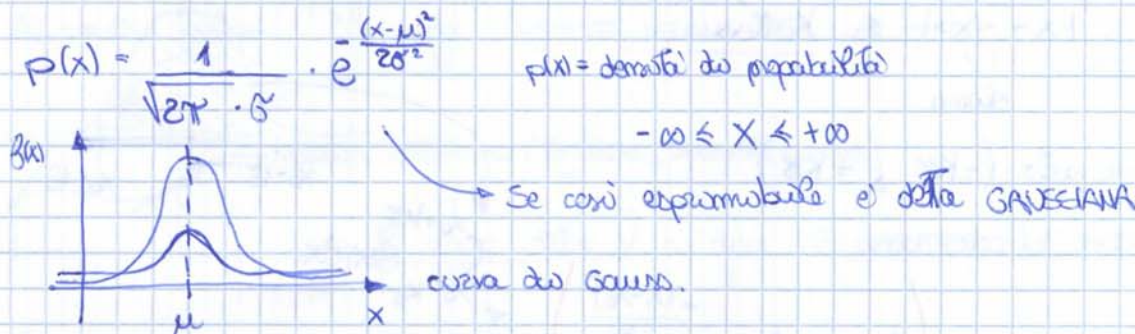 p(x) = 1 / (√2π · σ) · e^(-(x-μ)²/2σ²)
p(x) = densità di propabilità
-∞ ≤ x ≤ +∞
Se così esprimibile è detta GAUSSIANA
f(x)
curva di Gauss.
μ
x